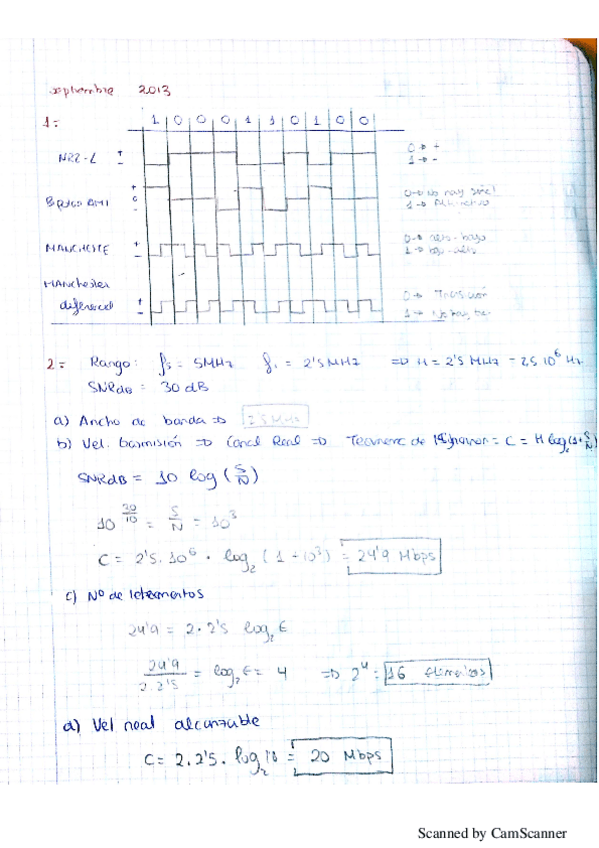 septiembre 2013
1=
1 0 0 0 1 1 0 1 0 0
NRZ-L + - 0→ + 1→ -
Bipolar AMI + 0 - 0→ No hay señal 1→ Alternativo
MANCHESTE + - 0→ alto-bajo 1→ bajo-alto
MANchester diferencial + - 0→ Transición 1→ No hay
2= Rango: = 5MHz = 2'5MHz => H = 2'5 MHz = 2'5.10⁶ Hz
SNRdB = 30 dB
a) Ancho de banda => 2'5 MHz
b) Vel. tasmisión => Canal Real => Teorema de Shannon = C = H log₂(1+S/N)
SNRdB = 10 log (S/N)
10^(30/10) = S/N = 10³
C = 2'5.10⁶ . log₂ (1+10³) = 24'9 Mbps
c) Nº de
24'9 = 2.2'5 log₂ E
24'9 / 2.2'5 = log₂ E = 4 => 2⁴ = 16 elementos
d) Vel real alcanzable
C = 2.2'5. log₂ 16 = 20 Mbps
Scanned by CamScanner